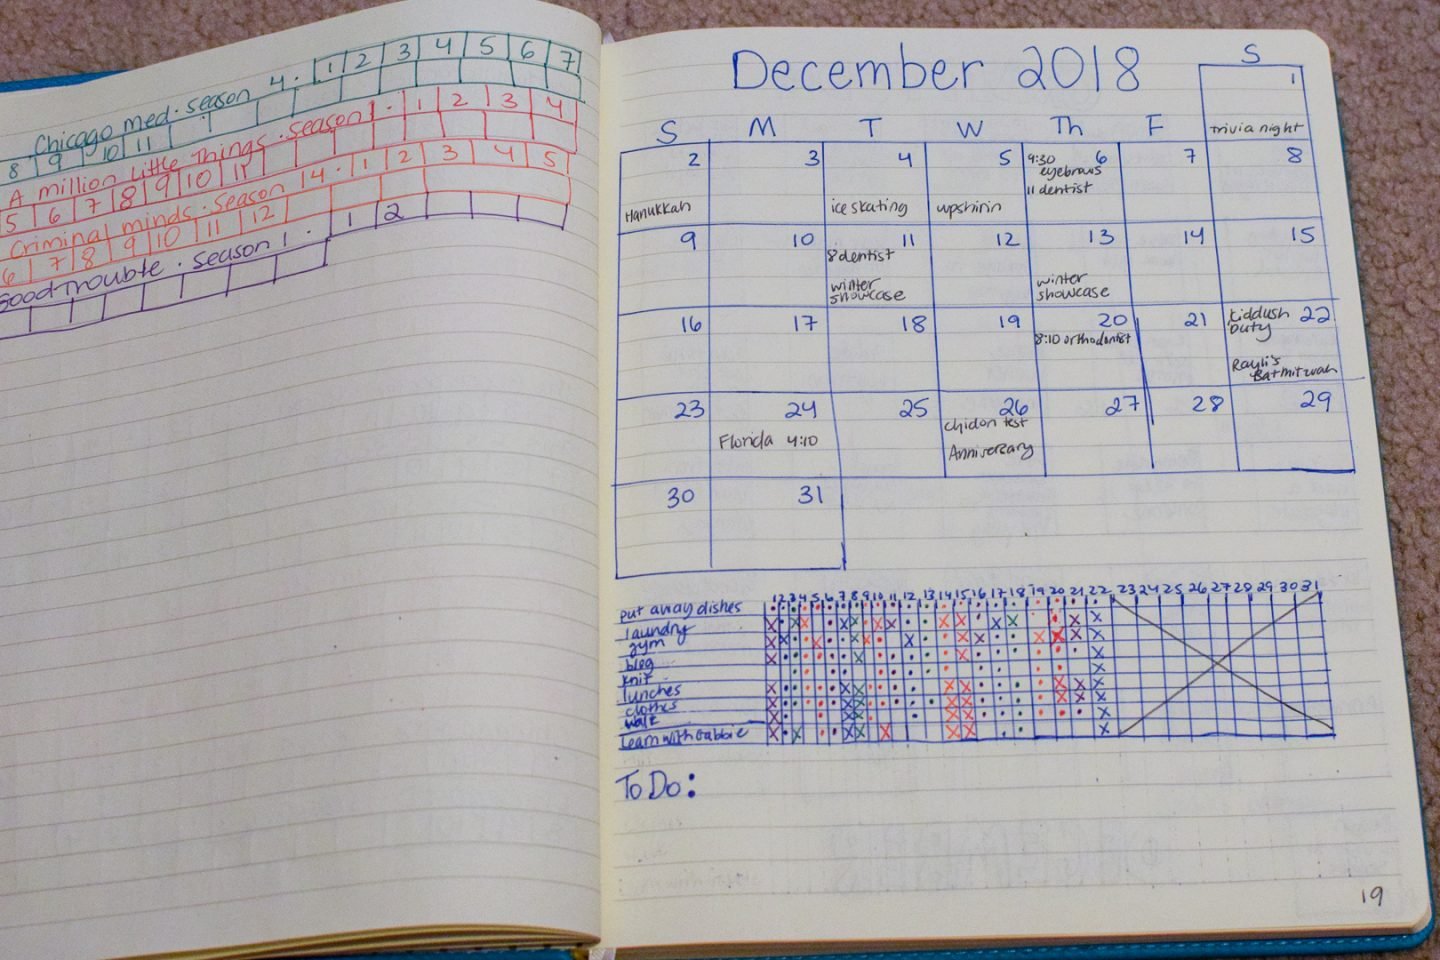 Chicago med. season 4. 1 2 3 4 5 6 7
8 9 10 11
A million Little Things. season 1. 1 2 3 4
5 6 7 8 9 10 11
Criminal minds. season 14. 1 2 3 4 5
6 7 8 9 10 11 12
Good Trouble. season 1. 1 2
December 2018
S
1
trivia night
S M T W Th F
2 3 4 5 6 7 8
9:30
eyebrows
11 dentist
Hanukkah ice skating upsherin
9 10 11 12 13 14 15
8 dentist
winter winter
showcase showcase
16 17 18 19 20 21 22
8:10 orthodontist
Kiddush
Duty
Rayli's
Batmitzvah
23 24 25 26 27 28 29
chidon test
Florida 4:10
Anniversary
30 31
1 2 3 4 5 6 7 8 9 10 11 12 13 14 15 16 17 18 19 20 21 22 23 24 25 26 27 28 29 30 31
put away dishes
laundry
gym
blog
knit
lunches
clothes
walk
learn with rabbie
To Do:
19